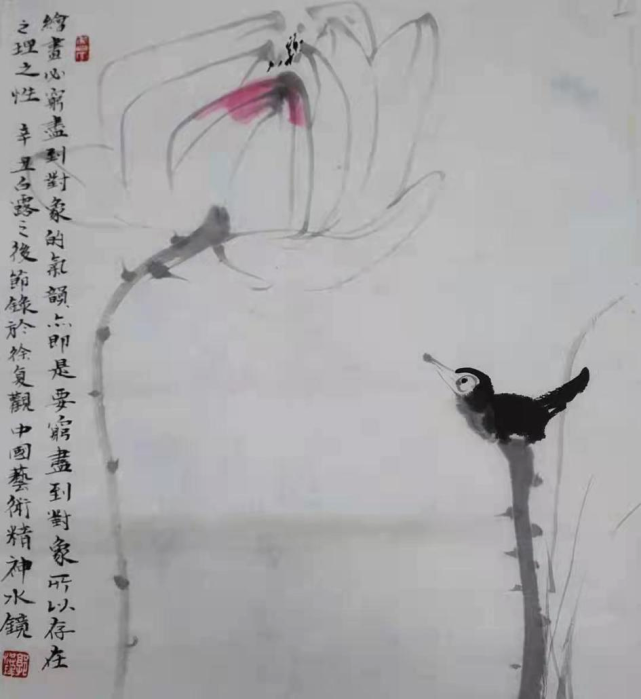 繪畫必窮盡到對象的氣韻亦即是要窮盡到對象所以存在
之理之性 辛丑白露之後節錄於徐复觀中國藝術精神水鏡